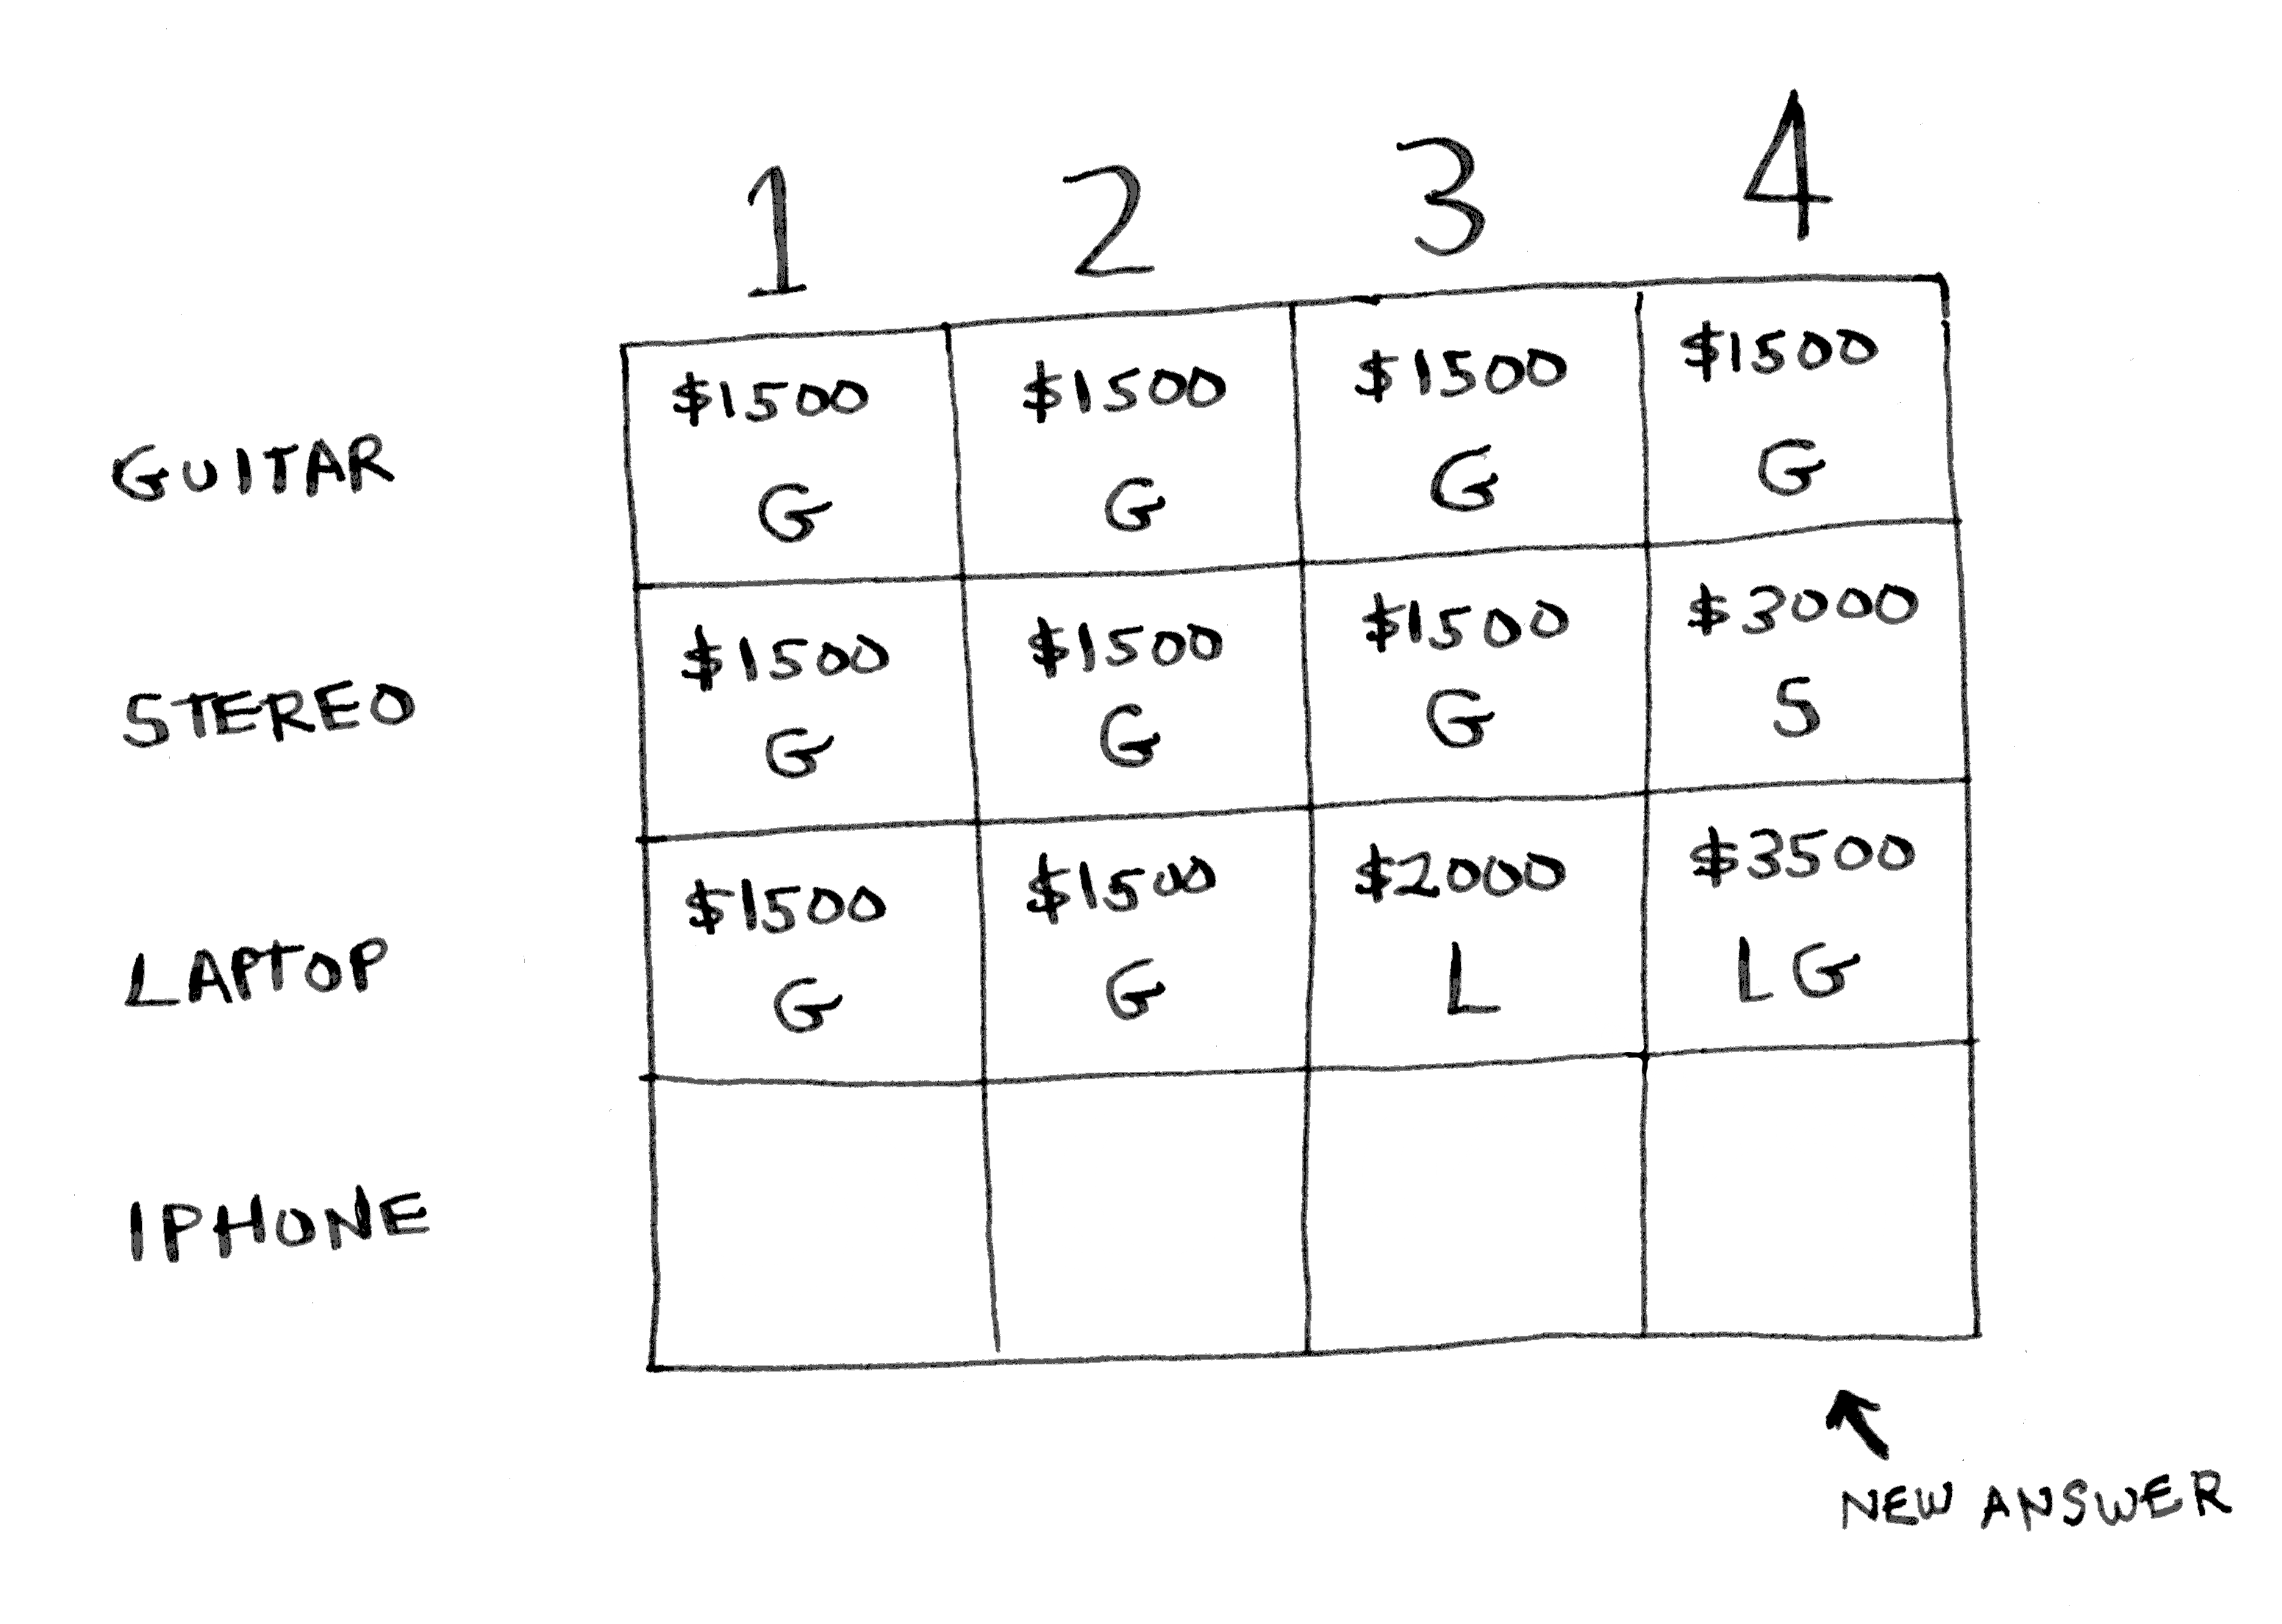 1 2 3 4
GUITAR $1500 $1500 $1500 $1500
G G G G
STEREO $1500 $1500 $1500 $3000
G G G S
LAPTOP $1500 $1500 $2000 $3500
G G L LG
IPHONE
NEW ANSWER